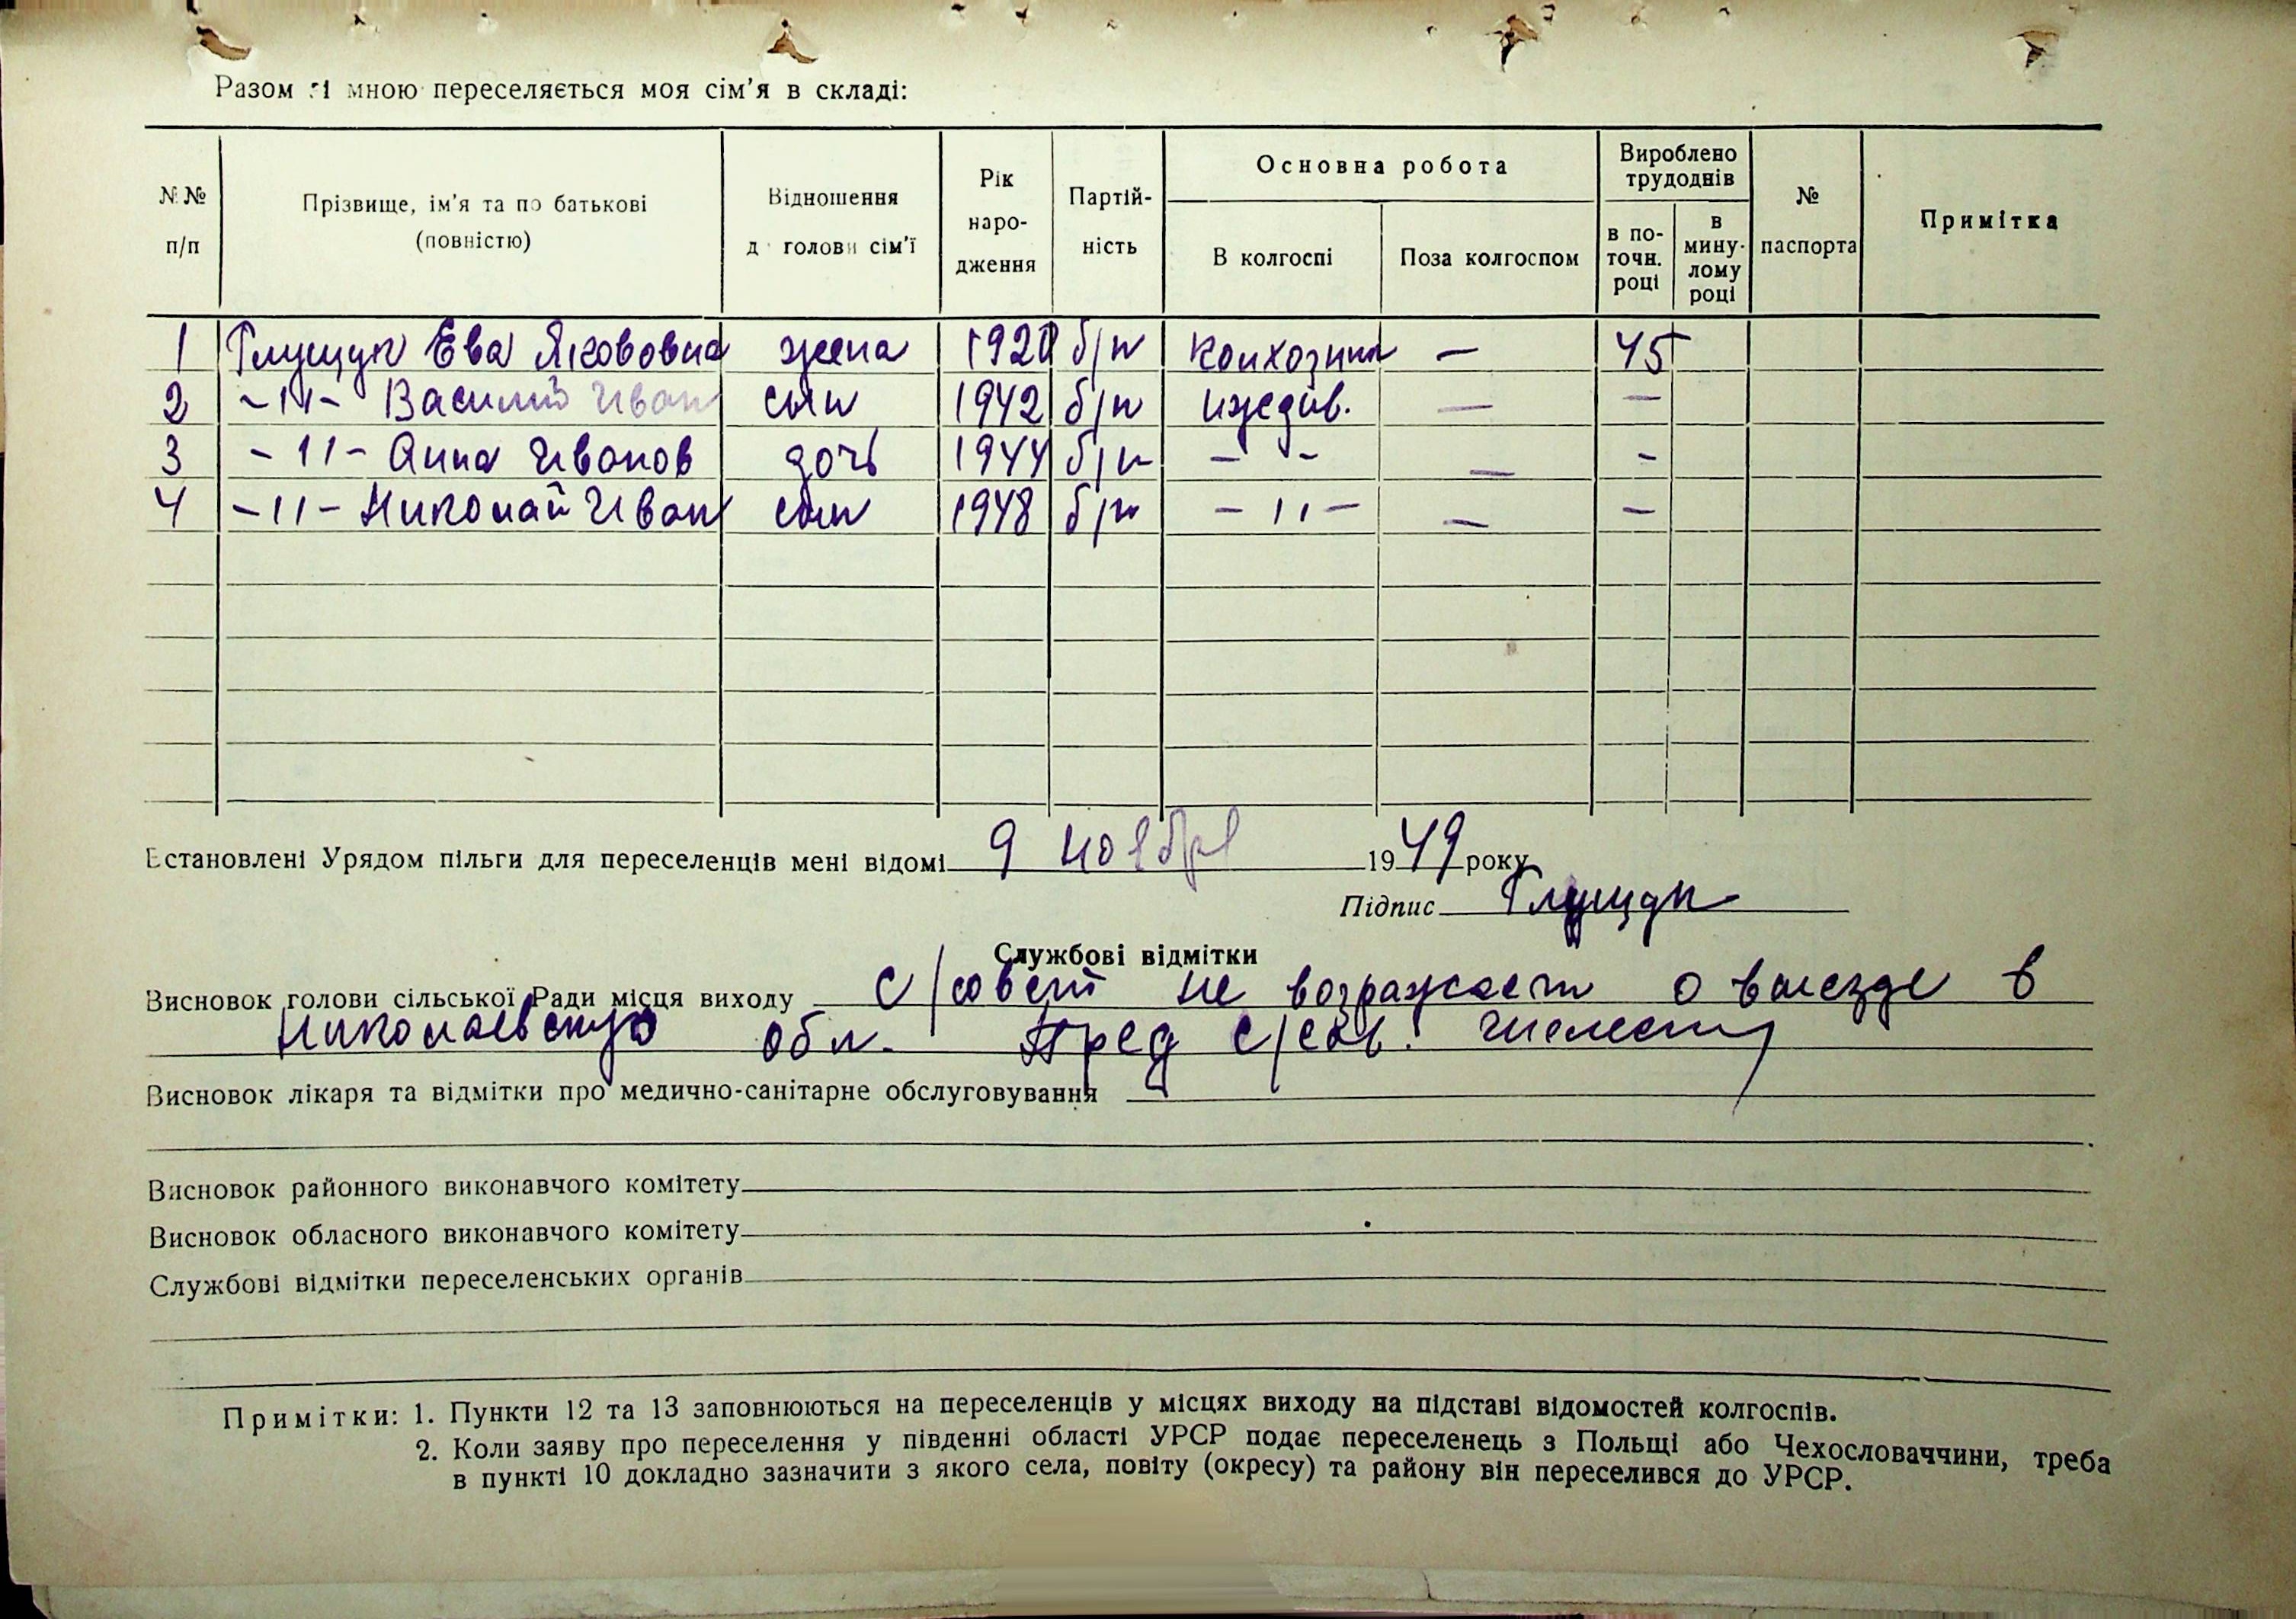 Разом зі мною переселяється моя сім'я в складі:
№№ п/п
Прізвище, ім'я та по батькові (повністю)
Відношення до голови сім'ї
Рік народження
Партійність
Основна робота
В колгоспі
Поза колгоспом
Вироблено трудоднів
в поточн. році
в минулому році
№ паспорта
Примітка
1 Глущук Ева Якововна жена 1920 б/п колхозник — 45
2 -11- Василий Иван сын 1942 б/п иждив. — —
3 -11- Анна Иванов дочь 1944 б/п - - — -
4 -11- Николай Иван сын 1948 б/п -11- — —
Встановлені Урядом пільги для переселенців мені відомі 9 ноября 1949 року
Підпис Глущук
Службові відмітки
Висновок голови сільської Ради місця виходу с/совет не возражает о выезде в
Николаевскую обл. Пред с/сов.
Висновок лікаря та відмітки про медично-санітарне обслуговування
Висновок районного виконавчого комітету
Висновок обласного виконавчого комітету
Службові відмітки переселенських органів
Примітки: 1. Пункти 12 та 13 заповнюються на переселенців у місцях виходу на підставі відомостей колгоспів.
2. Коли заяву про переселення у південні області УРСР подає переселенець з Польщі або Чехословаччини, треба
в пункті 10 докладно зазначити з якого села, повіту (окресу) та району він переселився до УРСР.